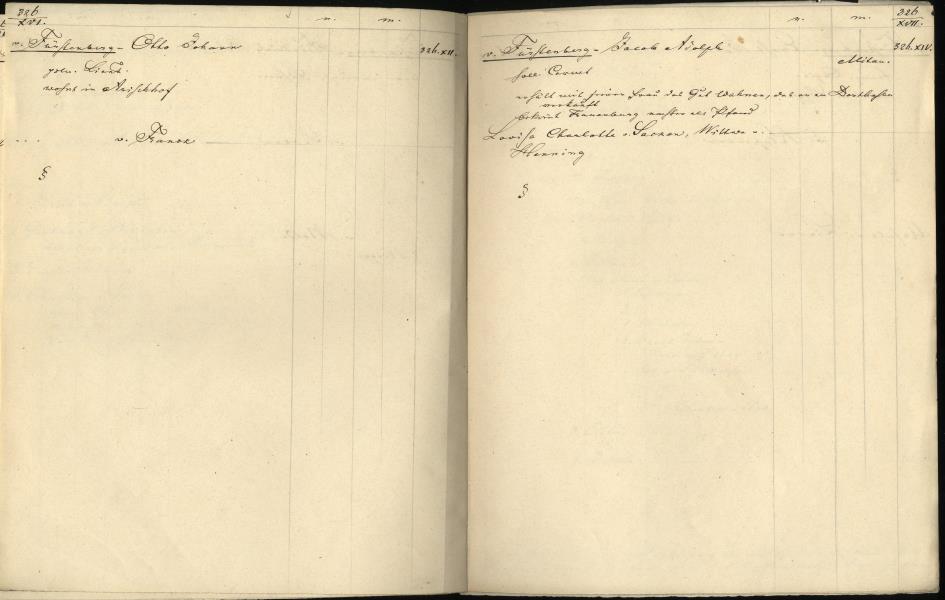 326
XVI.
n. m.
v. Fürstenberg - Otto Johann 326.XII.
poln. Lieut.
wohnt in Arischhof
v. Franck
§
326
XVII.
n. m.
v. Fürstenberg - Jacob Adolph 326.XIV.
Mitau.
holl. Cornet
erhält mit seiner Frau das Gut Wahnen, das er an Dorthesen
verkauft
bekömt Frauenburg als Pfand
Lovisa Charlotte v. Sacken, Wittwe v.
Henning
§